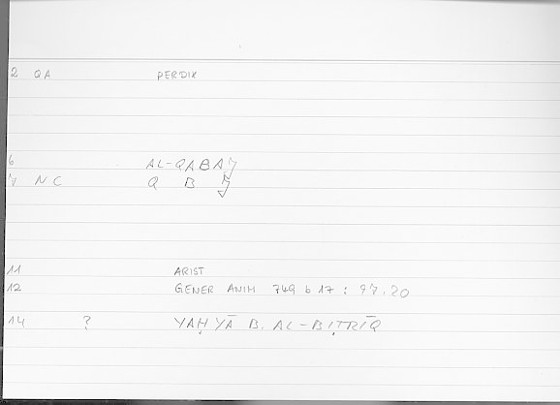 2 QA PERDIK
6 AL-QABAǦ
7 NC Q B Ǧ
11 ARIST
12 GENER ANIM 749 b 17 : 97.20
14 ? YAḤYĀ B. AL-BIṬRĪQ